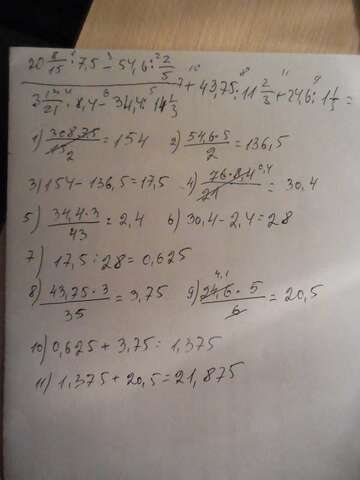 20 8/15 · 7,5 - 54,6 : 2/5
+ 43,75 : 11 2/3 + 24,6 : 1 1/5 =
3 13/21 · 8,4 - 34,4 : 14 1/3
1) 308·7,5/15 2 = 154 2) 54,6·5/2 = 136,5
3) 154 - 136,5 = 17,5 4) 76·8,4 0,4/21 = 30,4
5) 34,4·3/43 = 2,4 6) 30,4 - 2,4 = 28
7) 17,5 : 28 = 0,625
8) 43,75·3/35 = 3,75 9) 4,1 24,6·5/6 = 20,5
10) 0,625 + 3,75 = 1,375
11) 1,375 + 20,5 = 21,875